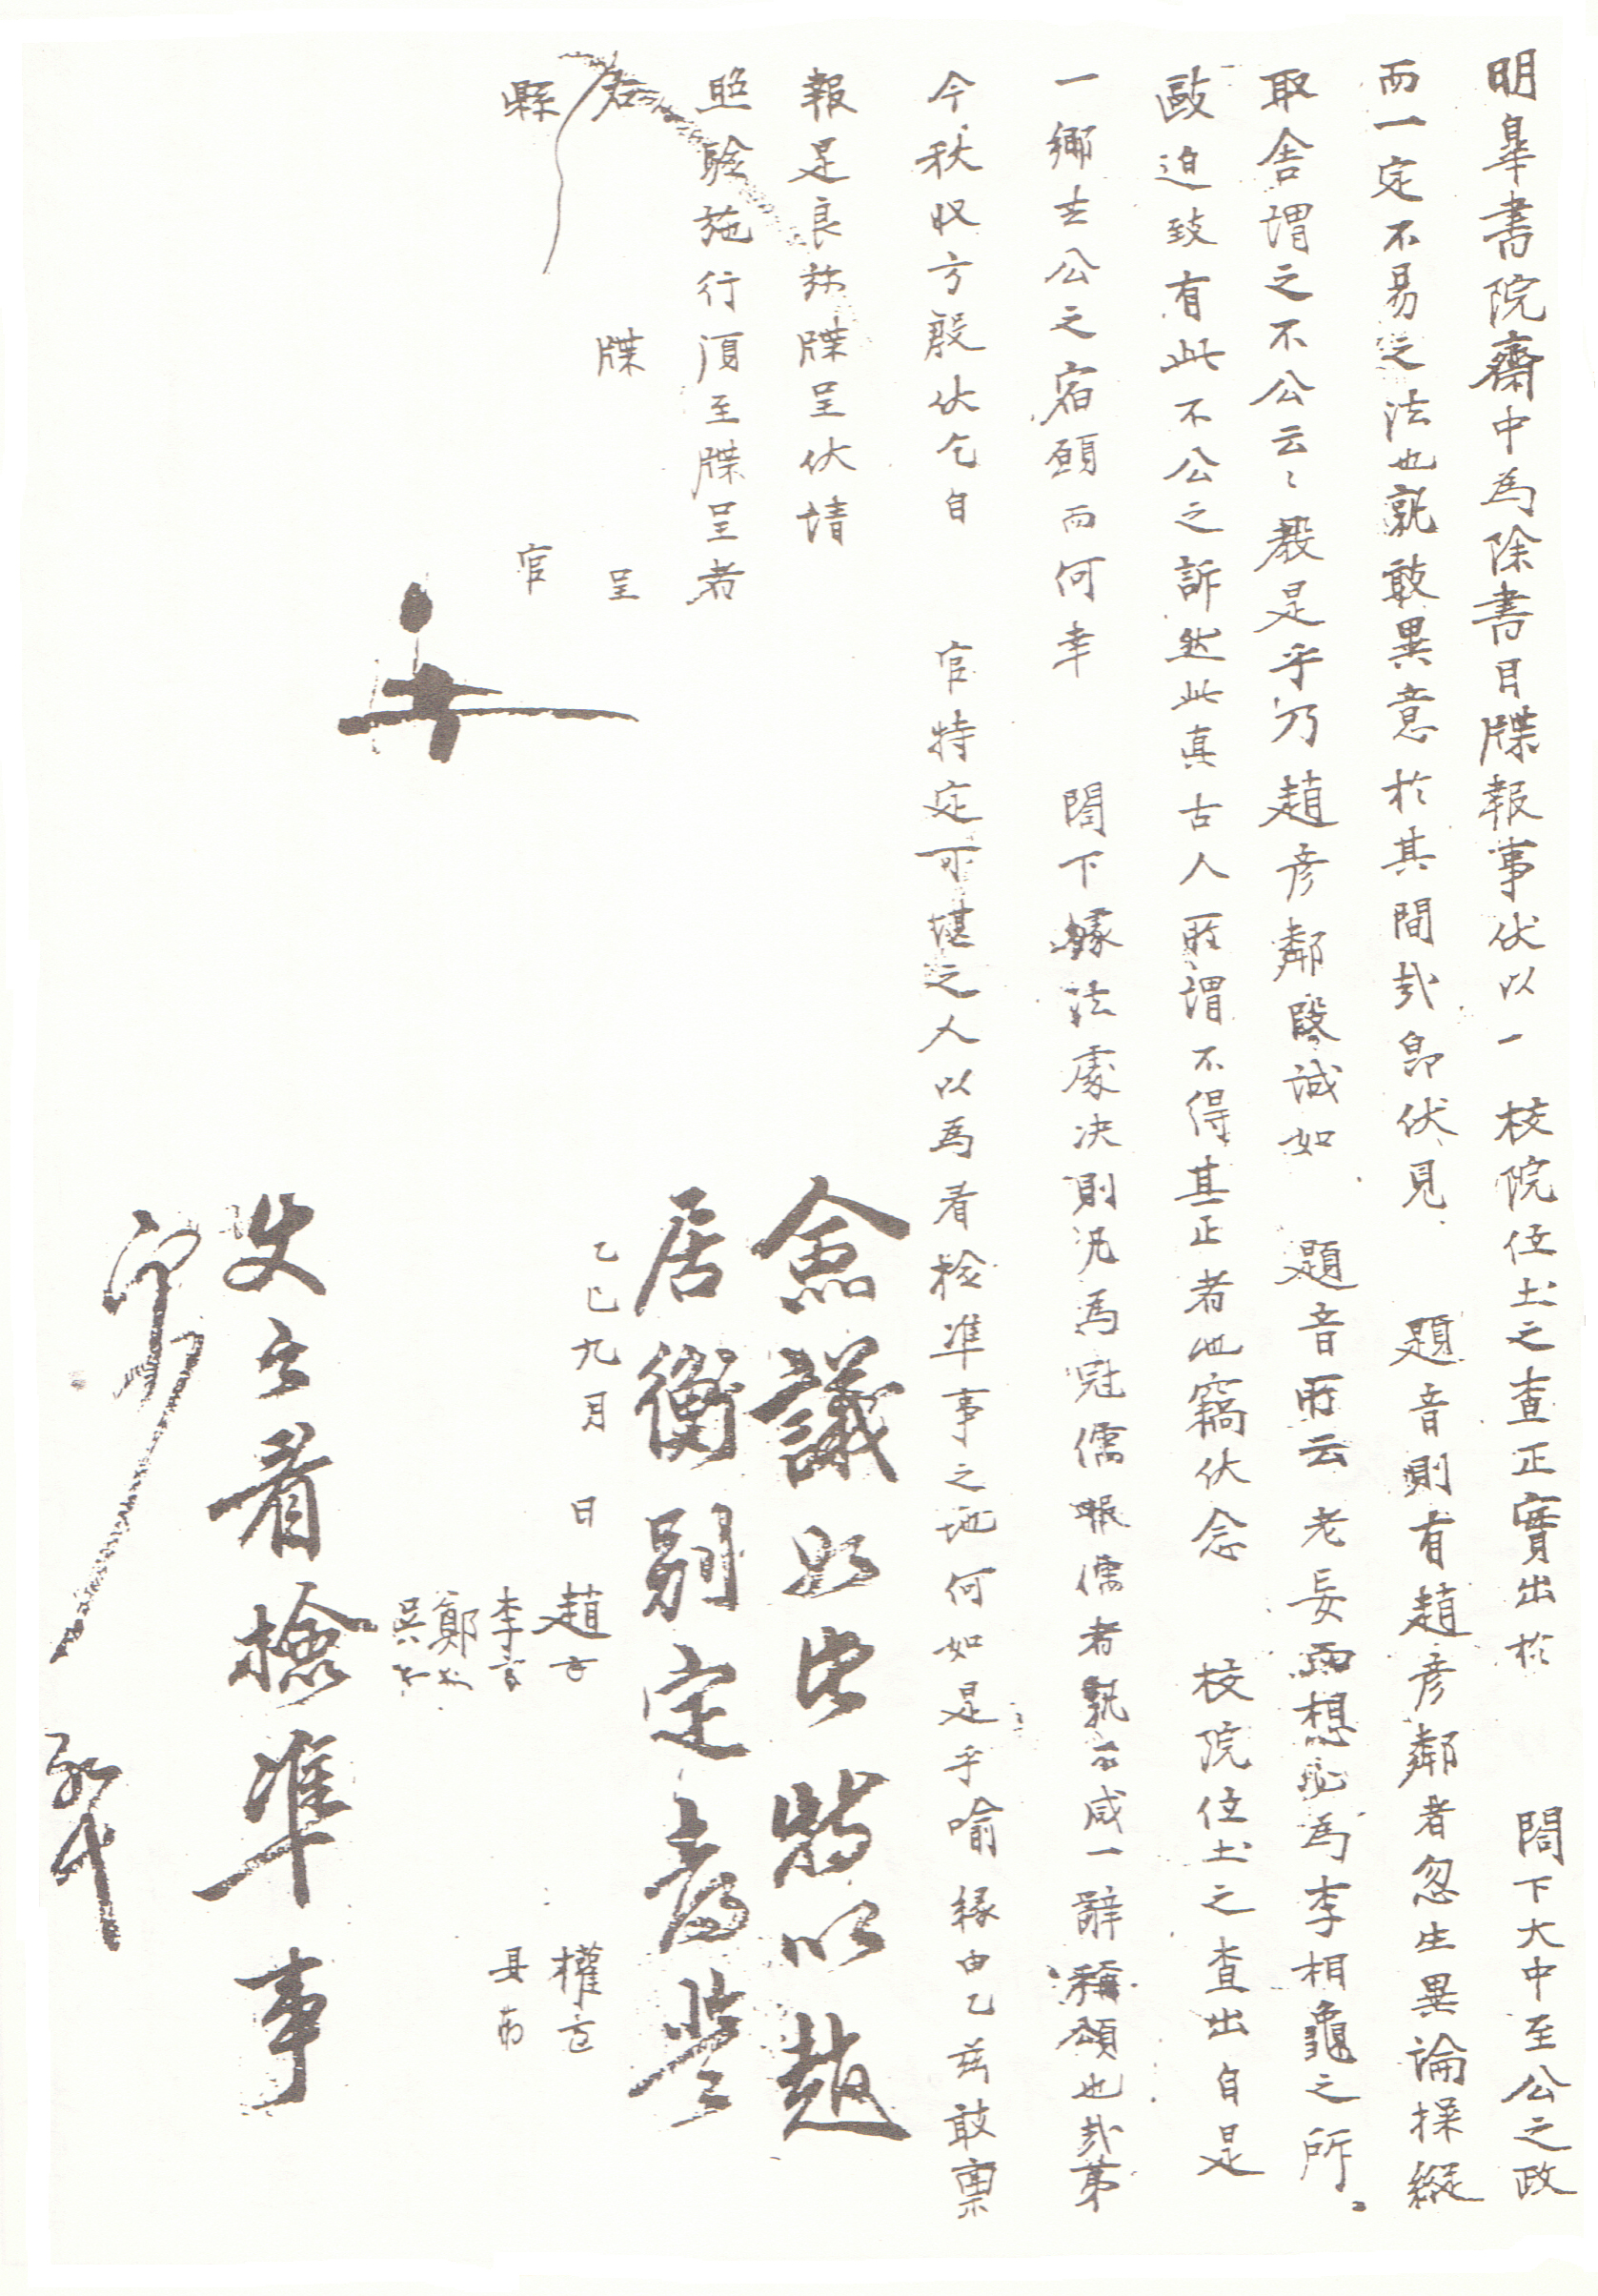 明皐書院齋中爲除書目牒報事伏以一 校院位土之查正實出於 閤下大中至公之政
而一定不易之法也孰敢異意於其間哉卽伏見 題音則有趙彦鄰者忽生異論操縱
取舍謂之不公云〻設是乎乃趙彦鄰段誠如 題音所云 老妄而想必爲李相龜之所
敺迫致有此不公之訴然此眞古人所謂不得其正者也竊伏念 校院位土之查出自是
一鄕士公之宿願而何幸 閤下據法處決則凡爲冠儒服儒者孰不咸一辭稱頌也哉第
今秋收方殷伏乞自 官特定可堪之人以爲看檢準事之地何如是乎喩緣由乙玆敢稟
報是良旀牒呈伏請
照驗施行須至牒呈者
右 牒 呈
縣 官
乙巳九月 日 趙
李
鄭
吳
權
僉議如此特以趙
居衡別定爲
之看檢準事